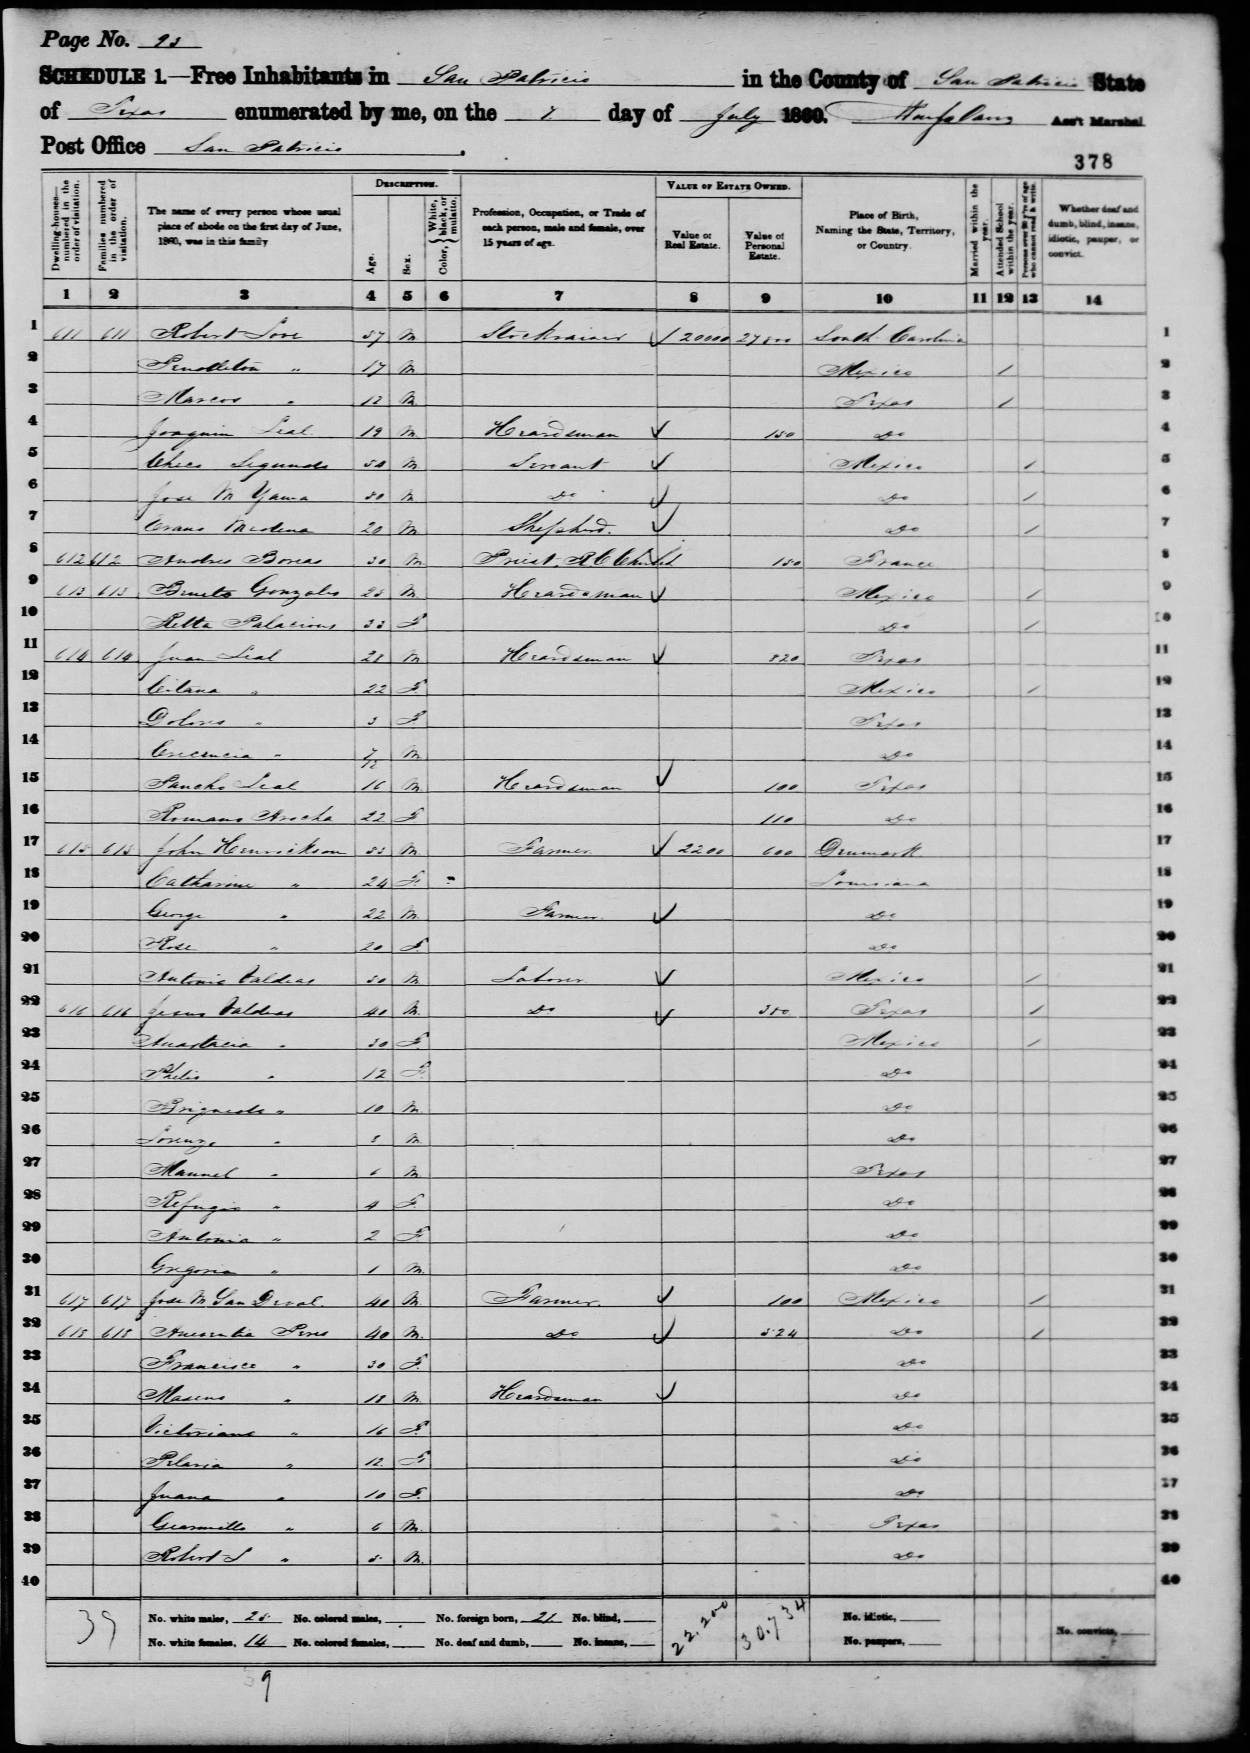 Page No. 93
SCHEDULE 1.—Free Inhabitants in San Patricio in the County of San Patricio State
of Texas enumerated by me, on the 8 day of July 1860. Ass't Marshal
Post Office San Patricio.
378
DESCRIPTION. VALUE OF ESTATE OWNED.
Dwelling-houses—numbered in the order of visitation. Families numbered in the order of visitation. The name of every person whose usual place of abode on the first day of June, 1860, was in this family Age. Sex. Color, { White, black, or mulatto. Profession, Occupation, or Trade of each person, male and female, over 15 years of age. Value of Real Estate. Value of Personal Estate. Place of Birth, Naming the State, Territory, or Country. Married within the year. Attended School within the year. Persons over 20 y'rs of age who cannot read & write. Whether deaf and dumb, blind, insane, idiotic, pauper, or convict.
1 2 3 4 5 6 7 8 9 10 11 12 13 14
1 611 611 Robert Love 57 M Stockraiser 20000 27800 South Carolina 1
2 Pendleton " 17 M Mexico / 2
3 Marcos " 12 M Texas / 3
4 Joaquin Leal 19 M Heardsman 150 Do 4
5 Segundo 50 M Servant Mexico / 5
6 Jose M Yama 80 M Do Do / 6
7 Medina 20 M Shepherd. Do / 7
8 612 612 Andres 30 M Priest. R C Church 150 France 8
9 613 613 Benito Gonzales 25 M Heardsman Mexico / 9
10 Palacious 33 F Do / 10
11 614 614 Juan Leal 28 M Heardsman 820 Texas 11
12 " 22 F Mexico / 12
13 Dolores " 3 F Texas 13
14 " 7/12 M Do 14
15 Pancho Leal 16 M Heardsman 100 Texas 15
16 Romano Arocha 22 F 110 Do 16
17 615 615 John Henrickson 55 M Farmer 2200 600 Denmark 17
18 Catharine " 24 F Louisiana 18
19 George " 22 M Farmer Do 19
20 Rose " 20 F Do 20
21 Antonio Valdeas 50 M Laborer Mexico / 21
22 616 616 Jesus Valdeas 40 M Do 350 Texas / 22
23 Anastacia " 30 F Mexico / 23
24 " 12 F Do 24
25 " 10 M Do 25
26 Lorenzo " 8 M Do 26
27 Manuel " 6 M Texas 27
28 Refugio " 4 F Do 28
29 Antonia " 2 F Do 29
30 Gregoria " 1 M Do 30
31 617 617 Jose M San Doval. 40 M Farmer. 100 Mexico / 31
32 618 618 Peres 40 M Do 524 Do / 32
33 Francisca " 30 F Do 33
34 " 18 M Heardsman Do 34
35 Victoriana " 16 F Do 35
36 Pilaria " 12 F Do 36
37 Juana " 10 F Do 37
38 " 6 M Texas 38
39 Robert L " 5 M Do 39
40 40
39 No. white males, 25 No. colored males, No. foreign born, 21 No. blind, 22.200 30.734 No. idiotic,
No. white females, 14 No. colored females, No. deaf and dumb, No. insane, No. paupers, No. convicts,
39